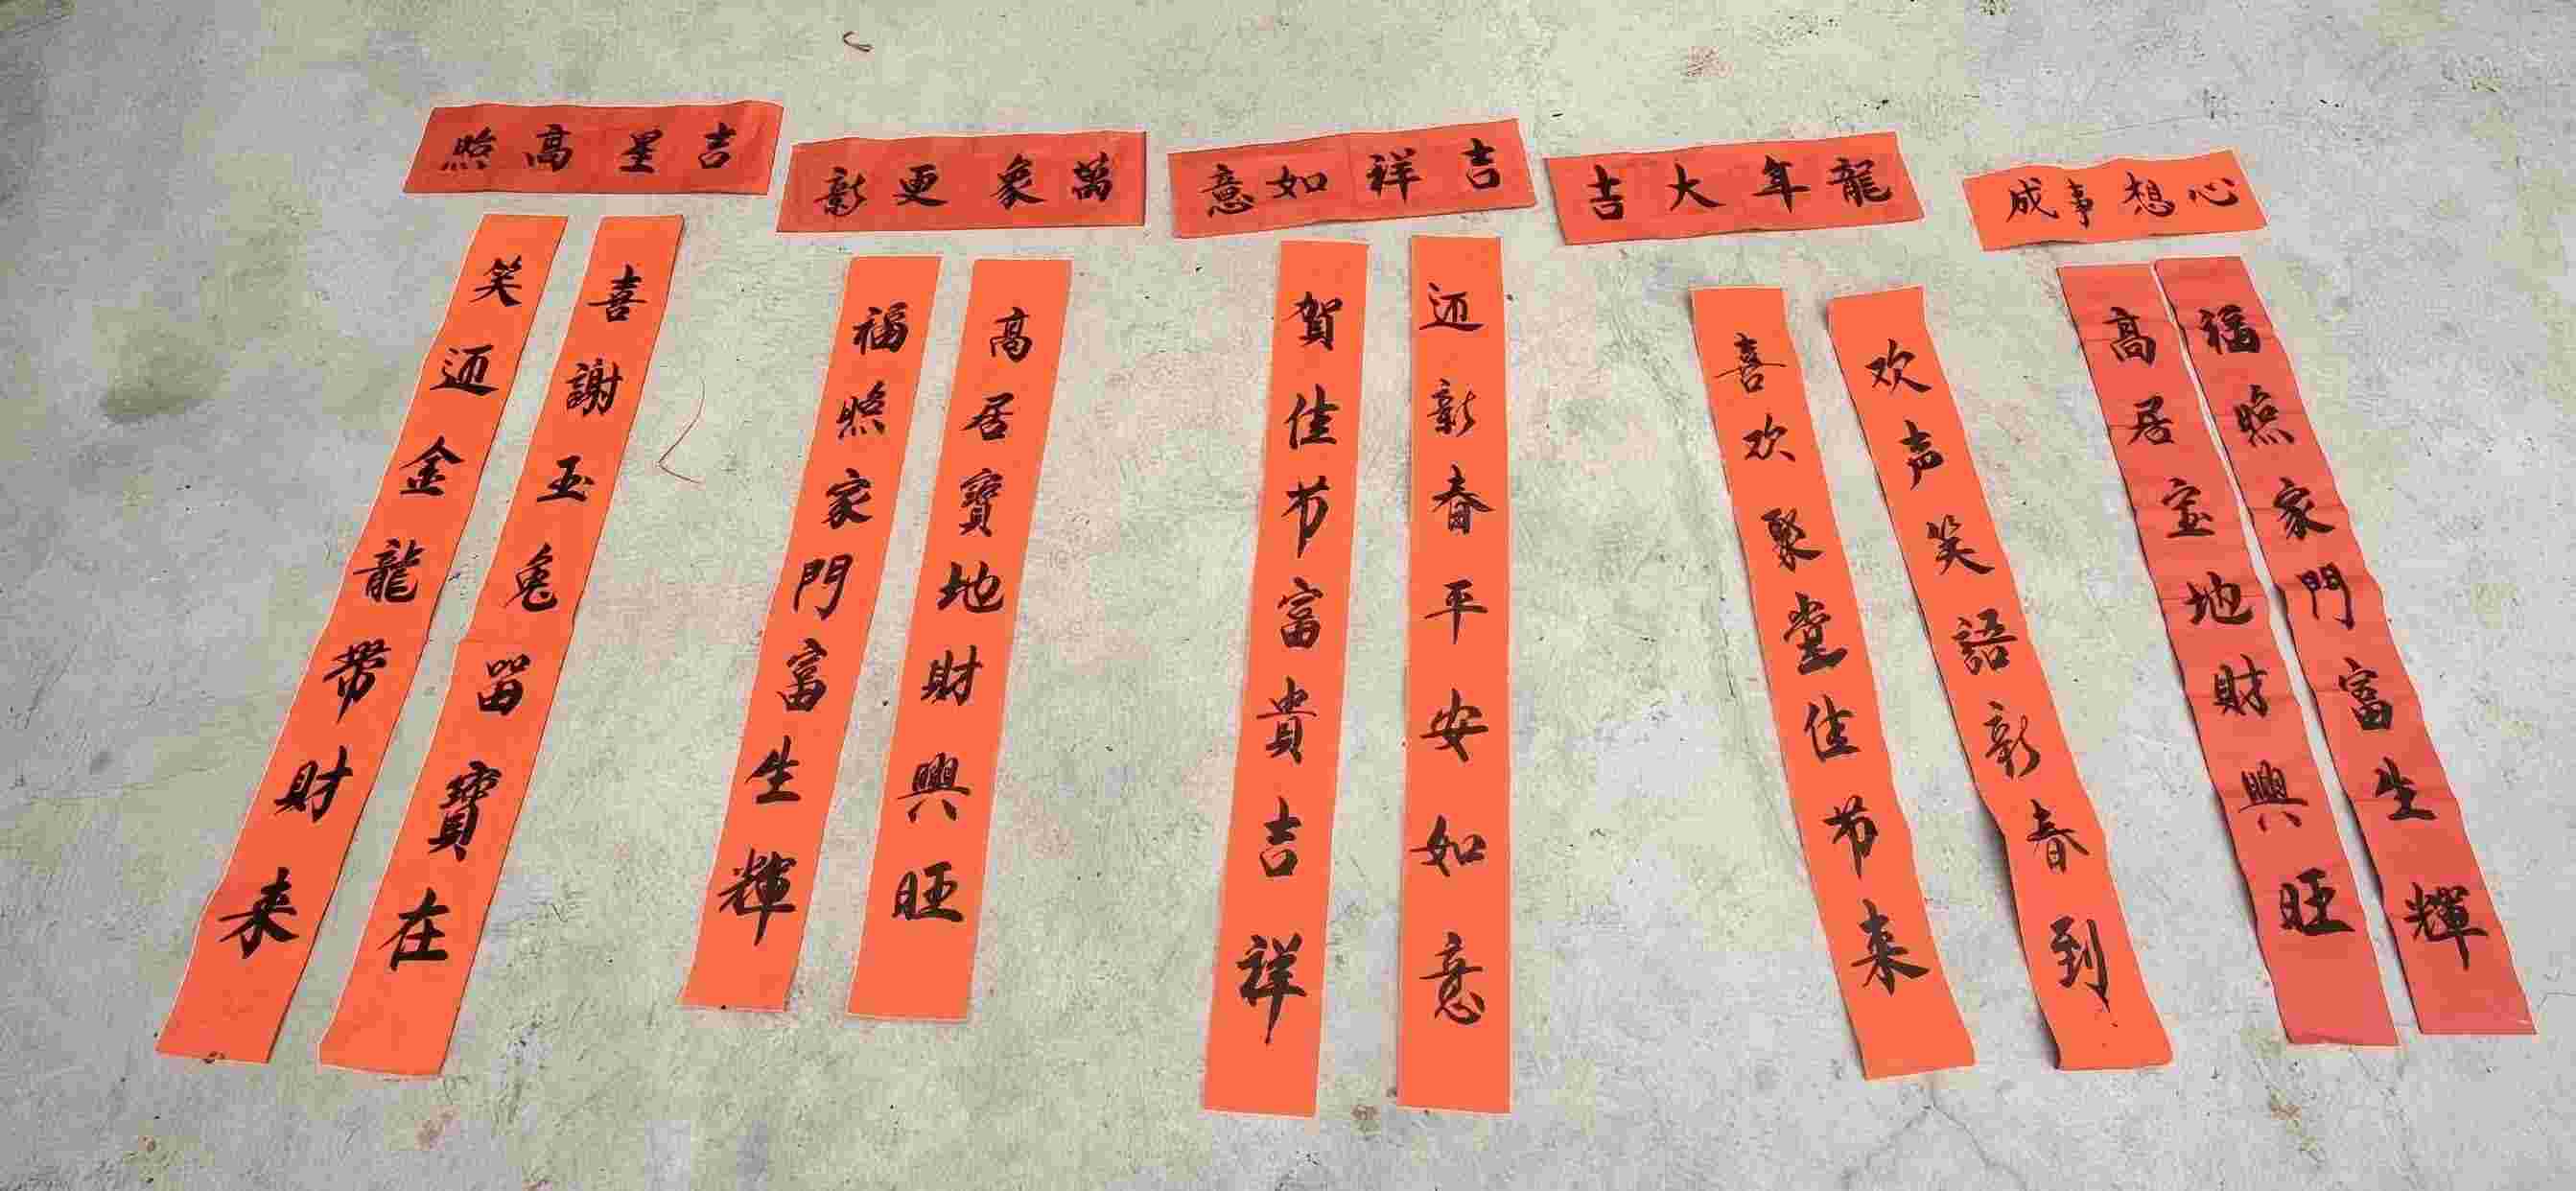 吉星高照
喜謝玉兔留寶在
笑迎金龍带財来
萬象更新
高居寶地財興旺
福照家門富生輝
吉祥如意
迎新春平安如意
賀佳节富貴吉祥
龍年大吉
欢声笑語新春到
喜欢聚堂佳节来
心想事成
福照家門富生輝
高居宝地財興旺